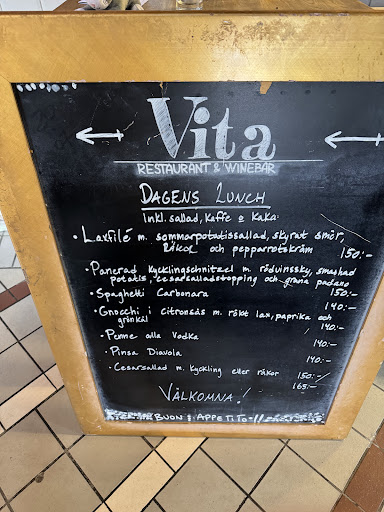 Vita
RESTAURANT & WINEBAR
DAGENS LUNCH
Inkl. sallad, kaffe o kaka
• Laxfilé m. sommarpotatissallad, skyrat smör,
RÄKOR och pepparrotskräm 150:-
• Panerad Kycklingschnitzel m. rödvinssky, smashad
potatis, cesarsalladstopping och grana padano
150:-
• Spaghetti Carbonara 140:-
• Gnocchi i citronsås m. rökt lax, paprika och
grönkål 140:-
• Penne alla Vodka 140:-
• Pinsa Diavola 140:-
• Cesarsallad m. kyckling eller räkor 150:-/
165:-
VÄLKOMNA!
BUON APPETITO